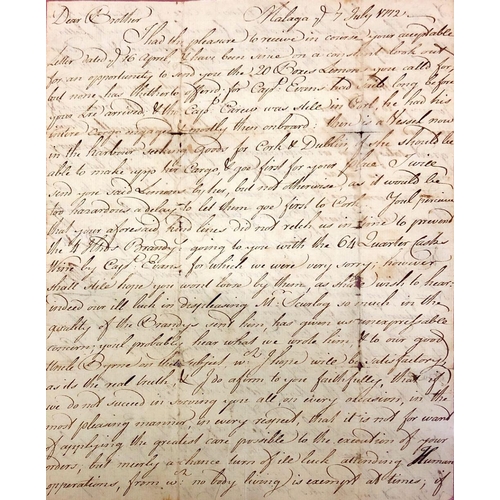 Dear Brother Malaga ye 7 July 1772
I had the pleasure to receive in course your acceptable
Letter dated ye 16 April I have been since in a constant look out
for an opportunity to send you the 20 Boxes Lemons you called for
but none has hitherto offerd, for Capt. Evans had saild long before
your Lre arrived & tho Capt. Carew was still in Cork, he had his
entire Cargo engaged & mostly then onboard. there is a Vessel now
in the harbour seeking Goods for Cork & Dublin, if she should be
able to make up her Cargo, & goe first for your place I will
send you said Lemons by her, but not otherwise, as it would be
too hazardous a delay to let them goe first to Cork. Youl perceive
that your aforesaid kind lines did not reach us in time to prevent
the 4 Hhds Brandy going to you with the 64 Quarter casks
Wine by Capt. Evans, for which we were very sorry, however
shall still hope you wont loose by them, as shall wish to hear.
indeed our ill luck in displeasing Mr. so much in the
quality of the Brandys sent him, has given us unexpressable
concern, youl probably hear what we wrote him, & to our good
Uncle Byrne on that subject, wch. I hope will be satisfactory
as its the real truth, & I do afirm to you faithfully, that if
we do not succeed in serving you all on every occasion, in the
most pleasing manner, in every respect, that it is not for want
of applying the greatest care possible to the execution of your
orders, but merly a chance turn of ill luck attending Human
opperations, from wch. no body living is exempt at times, if